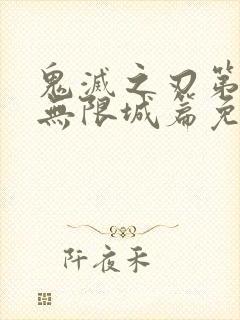 鬼滅之刃第
無限城篇免
阡夜禾